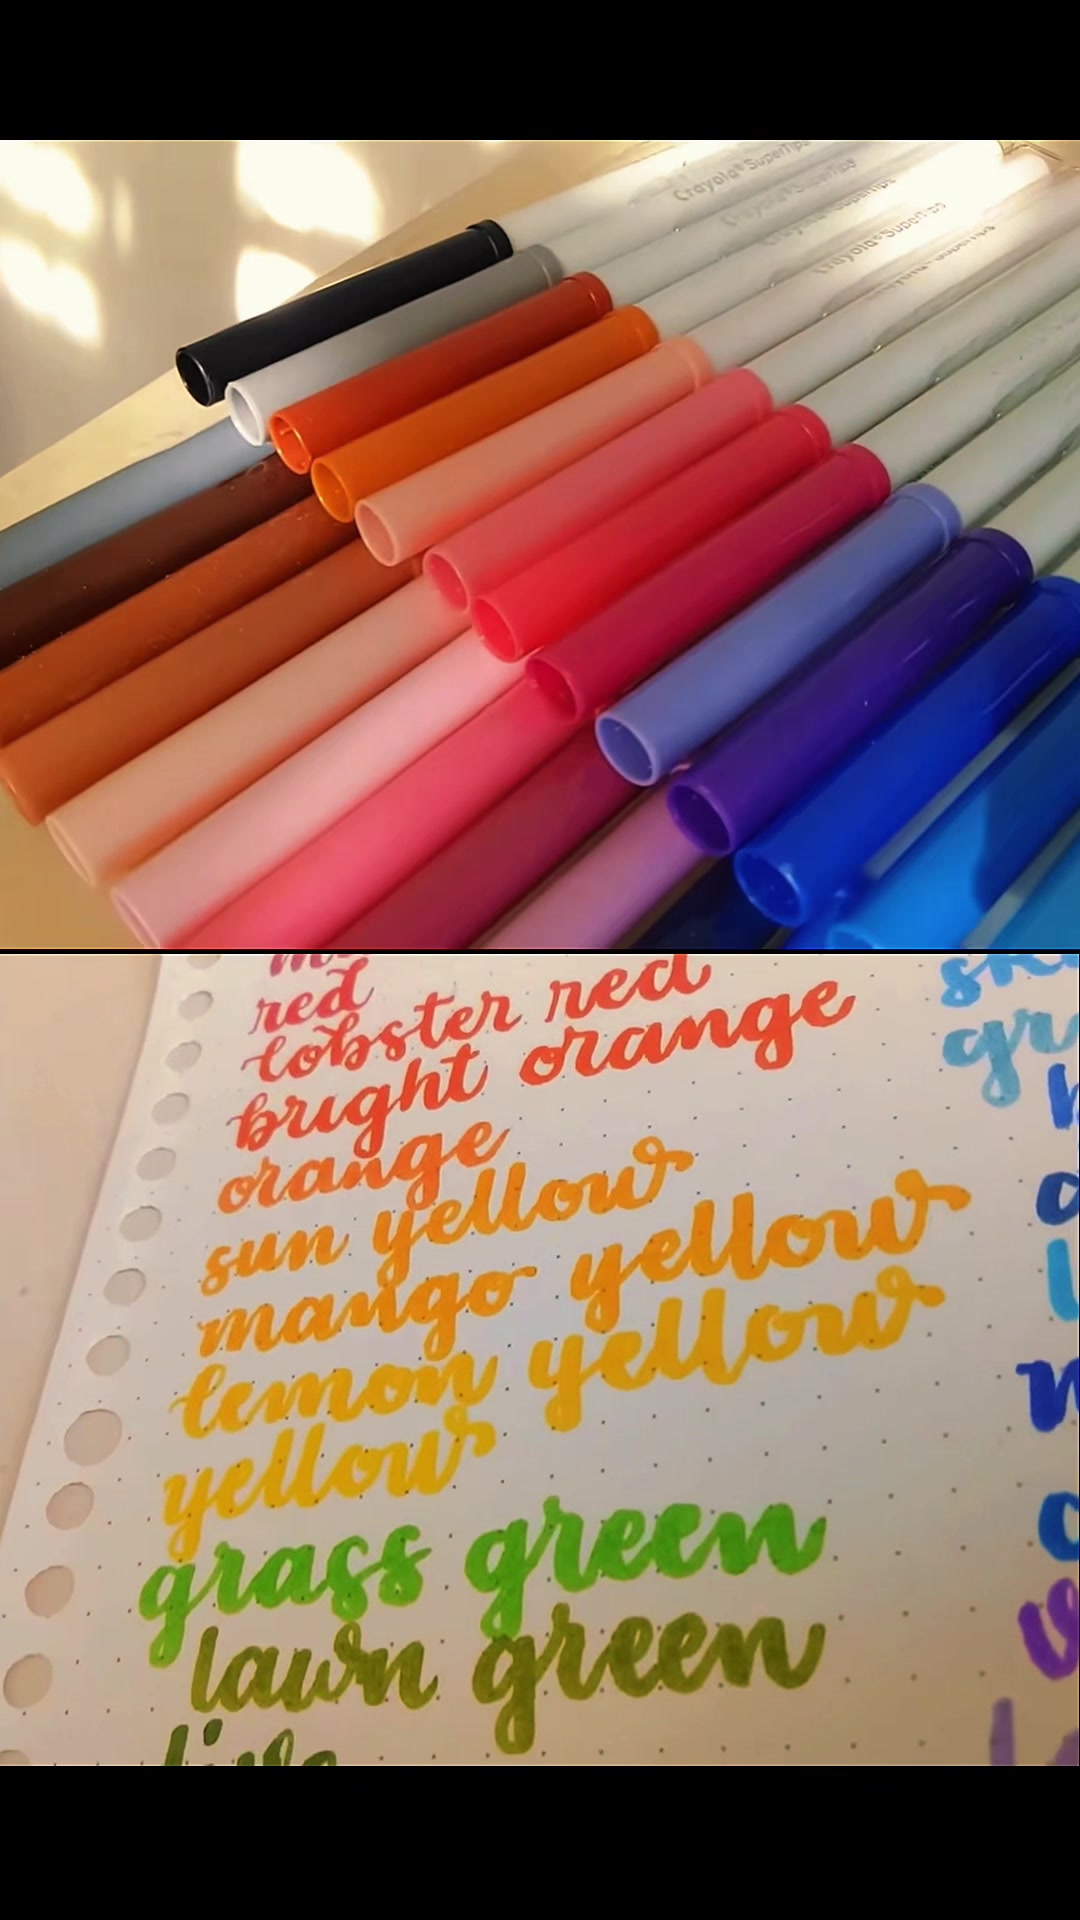 Crayola® SuperTips
Crayola® SuperTips
Crayola® SuperTips
Crayola® SuperTips
Crayola® SuperTips
red
lobster red
bright orange
orange
sun yellow
mango yellow
lemon yellow
yellow
grass green
lawn green